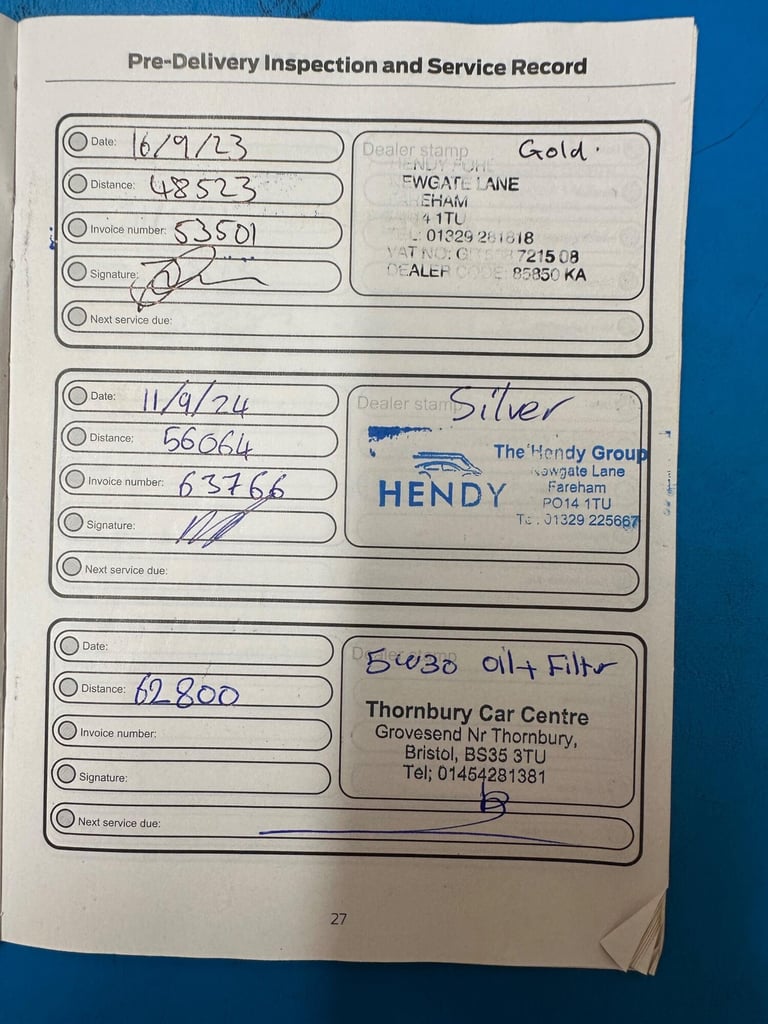 Pre-Delivery Inspection and Service Record
Date: 16/9/23
Distance: 48523
Invoice number: 53501
Signature:
Next service due:
Dealer stamp Gold.
HENDY
EWGATE LANE
EHAM
4 1TU
L: 01329 281818
VAT NO: 7215 08
DEALER CODE: 85850 KA
Date: 11/9/24
Distance: 56064
Invoice number: 63766
Signature:
Next service due:
Dealer stamp Silver
HENDY
The Hendy Group
Newgate Lane
Fareham
PO14 1TU
01329 225667
Date:
Distance: 62800
Invoice number:
Signature:
Next service due:
Dealer stamp
5W30 Oil + Filtr
Thornbury Car Centre
Grovesend Nr Thornbury,
Bristol, BS35 3TU
Tel; 01454281381
27